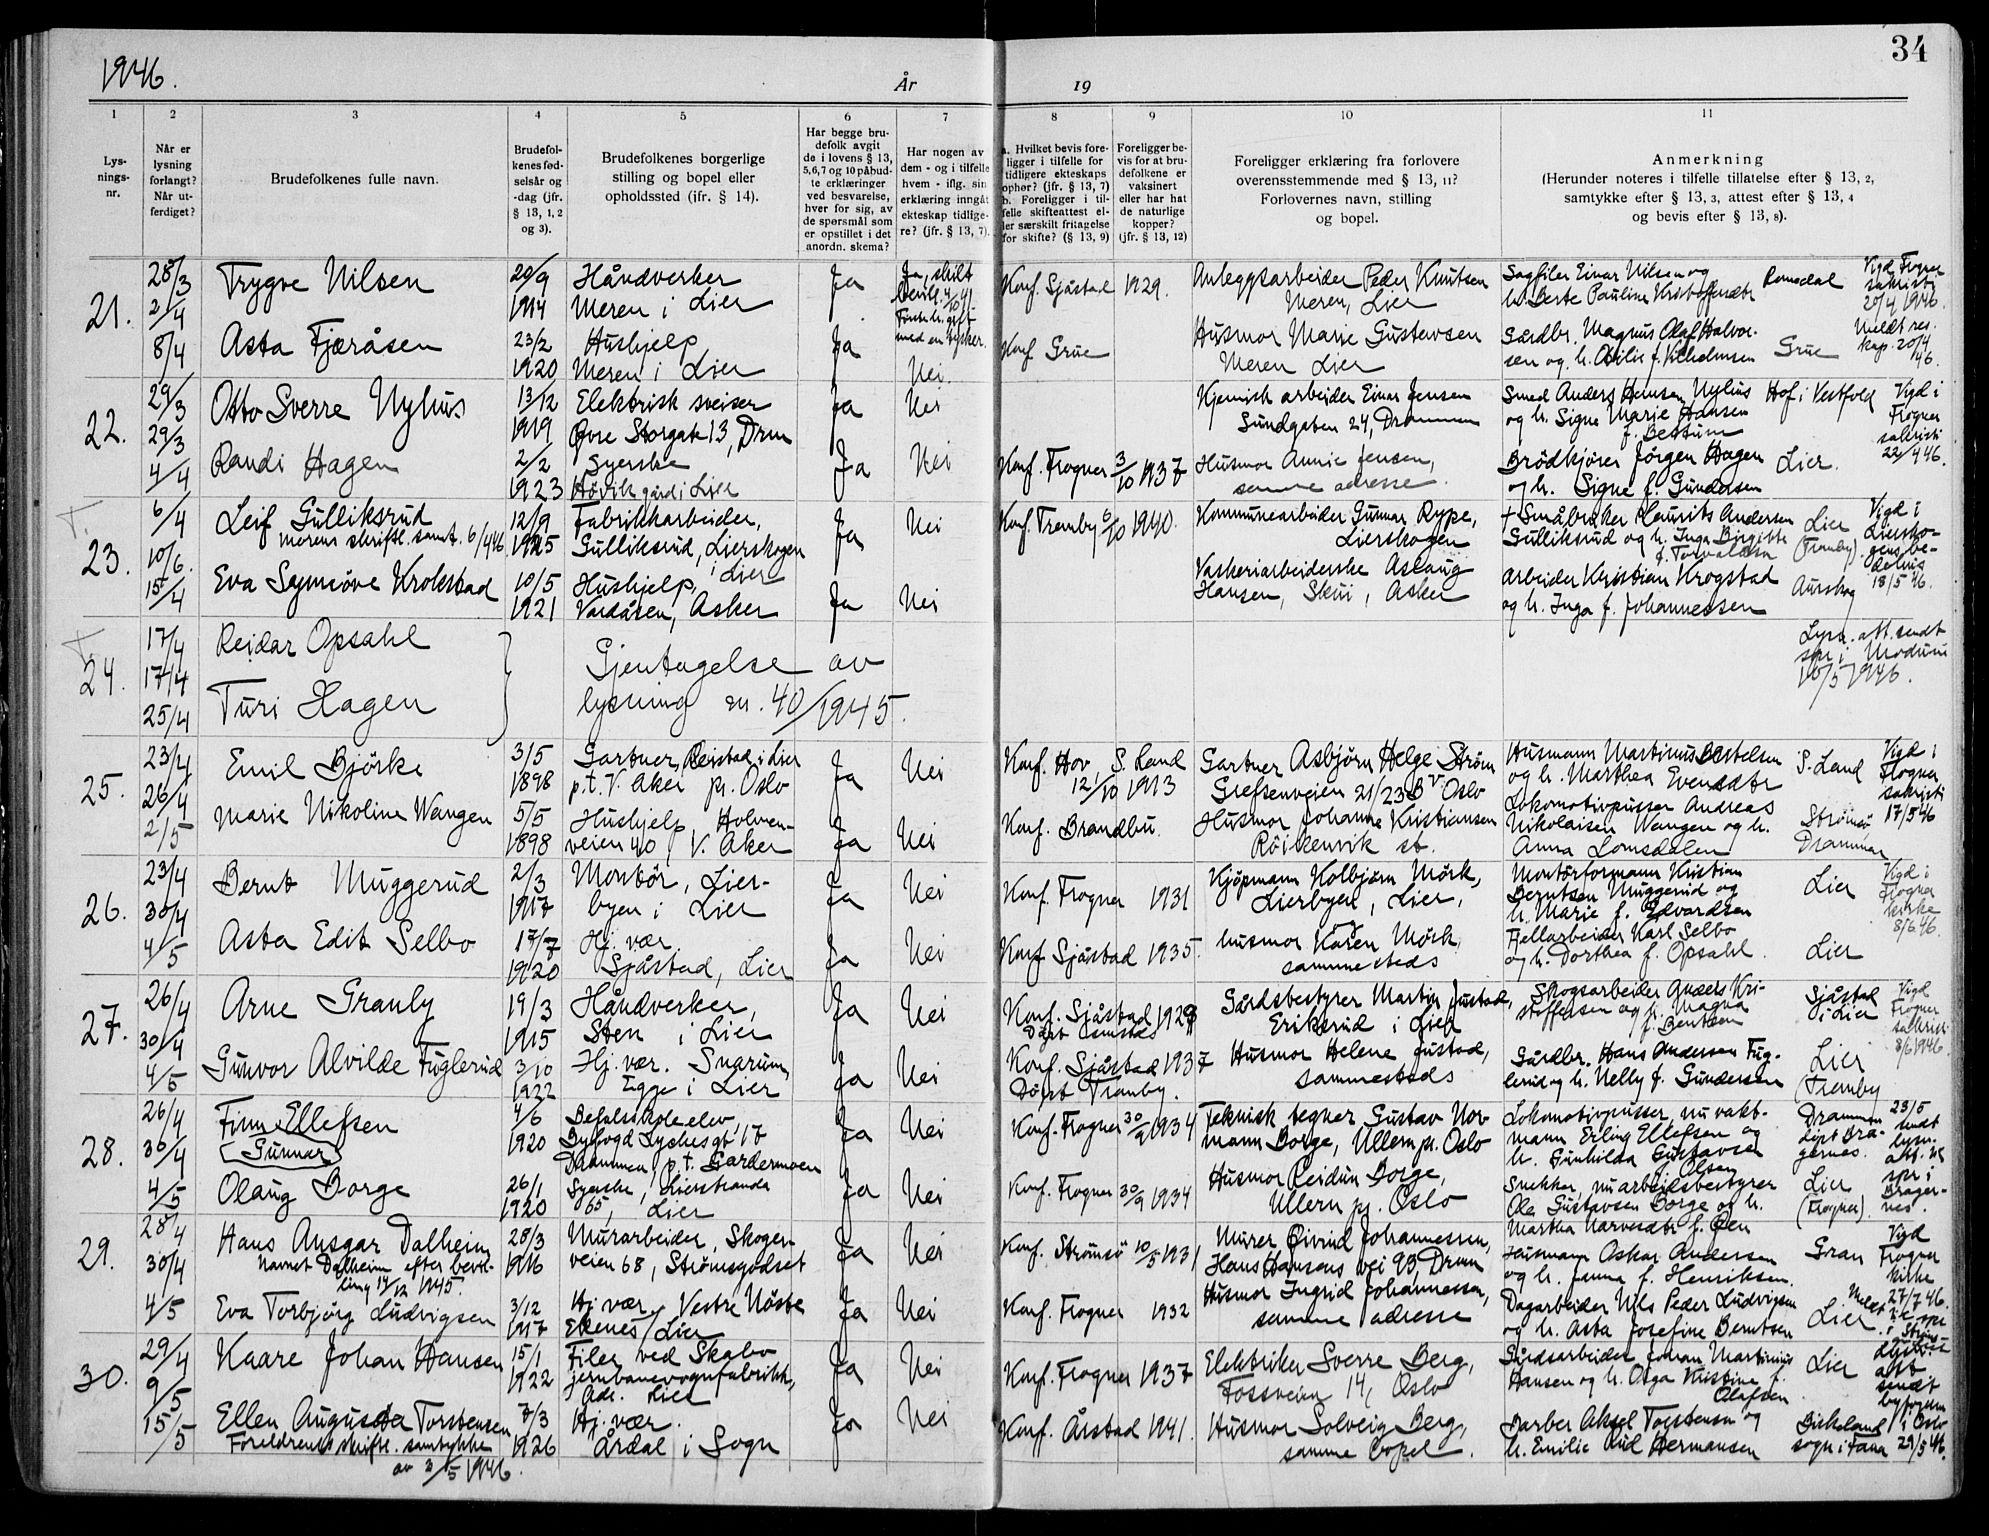 1946.
År
19
34
1
2
3
4
5
6
7
8
9
10
11
Lys-
nings-
nr.
Når er
lysning
forlangt?
Når ut-
ferdiget?
Brudefolkenes fulle navn.
Brudefol-
kenes fød-
selsår og
-dag (jfr.
§ 13, 1, 2
og 3).
Brudefolkenes borgerlige
stilling og bopel eller
opholdssted (jfr. § 14).
Har begge bru-
defolk avgit
de i lovens § 13,
5,6,7 og 10 påbud-
te erklæringer
ved besvarelse,
hver for sig, av
de spørsmål som
er opstillet i det
anordn. skema?
Har nogen av
dem - og i tilfelle
hvem - iflg. sin
erklæring inngåt
ekteskap tidlige-
re? (jfr. § 13, 7).
a. Hvilket bevis fore-
ligger i tilfelle for
tidligere ekteskaps
ophør? (jfr. § 13, 7)
b. Foreligger i til-
felle skifteattest el-
ler særskilt fritagelse
for skifte? (§ 13, 9)
Foreligger be-
vis for at bru-
defolkene er
vaksinert
eller har hat
de naturlige
kopper?
(jfr. § 13, 12)
Foreligger erklæring fra forlovere
overensstemmende med § 13, 11?
Forlovernes navn, stilling
og bopel.
Anmerkning
(Herunder noteres i tilfelle tillatelse efter § 13, 2,
samtykke efter § 13, 3, attest efter § 13, 4
og bevis efter § 13, 8).
21.
28/3
2/4
8/4
Trygve Nilsen
20/9
1914
Håndverker
Meren i Lier
Ja
Ja, skilt
Konf. Sjåstad 1929.
Anleggsarbeider Peder Knutsen
Meren, Lier
Sagfiler Einar Nilsen og
Romsdal
Vigd Frogner
sakristi
20/4 1946.
Asta Fjæråsen
23/2
1920
Hushjelp
Meren i Lier
Ja
Nei.
Konf Grue
Husmor Marie Gustavsen
Meren Lier
Gårdbr. Magnus Olaf Halvor-
sen og h. Otilie f. Vilhelmsen
Grue
Meldt res.
kap. 20/4
46.
22.
29/3
29/3
4/4
Otto Sverre Nyhus
13/12
1919
Elektrisk sveiser
Øvre Storgate 13, Drm
Ja
Nei
Kjemisk arbeider Einar Jensen
Sundgaten 24, Drammen
Smed Anders Hansen Nyhus
og h. Signe Marie Hansen
f. Bettum
Hof i Vestfold
Vigd i
Frogner
sakristi
22/4 46.
Randi Hagen
2/2
1923
Syerske
Høvik gård i Lier
Ja
Nei
Konf. Frogner 3/10 1937
Husmor Annie Jensen,
samme adresse.
Brödkjører Jörgen Hagen
og h. Signe f. Gundersen
Lier.
23.
6/4
10/6.
15/4
Leif Gulliksrud
morens skriftl. samt. 6/4 46
12/9
1925
Fabrikkarbeider,
Gulliksrud, Lierskogen
i Lier
Ja
Nei
Konf. Tranby 6/10 1940.
Kommunearbeider Gunnar Rype,
Lierskogen
+ Småbruker Laurits Andersen
Gulliksrud og h. Inga Birgitte
Lier
(Tranby).
Vigd i
Liersko-
gens be-
dehus
18/5 46.
Eva Synnöve Krokstad
10/5
1921
Hushjelp,
Vardåsen, Asker
Ja
Nei
Vaskeriarbeiderske Aslaug
Hansen, Skui, Asker
Arbeider Kristian Krogstad
og h. Inga f. Johannessen
Aurskog
24.
17/4
17/4
25/4
Reidar Opsahl
Turi Hagen
Gjentagelse av
lysning nr. 40/1945.
Lysn. att. sendt
spr i Modum
10/5 1946.
25.
23/4
26/4
2/5
Emil Björke
3/5
1898
Gartner, Reistad i Lier
p.t. V. Aker pr. Oslo
Ja
Nei
Konf. Hov, S. Land
12/10 1913
Gartner Asbjørn Helge Strøm
Grefsenveien 21/23 B V Oslo
Husmann Martinus Bertelsen
og h. Marthea Evensdtr
S. Land
Vigd i
Frogner
sakristi
17/5 46
Marie Nikoline Wangen
5/5
1898
Hushjelp Holmen-
veien 40, V. Aker
Ja
Nei
Konf. Brandbu.
Husmor Johanne Kristiansen
Röikenvik st.
Lokomotivpusser Andreas
Nikolaisen Wangen og h.
Anna Lomsdalen
Strømsø
Drammen
26.
23/4
30/4
4/5
Bernt Muggerud
2/3
1917
Montör, Lier-
byen i Lier
Ja
Nei
Konf. Frogner 1931
Kjøpmann Kolbjørn Mörk,
Lierbyen, Lier,
Montörformann Kristian
Berntsen Muggerud og
h. Marie f. Edvardsen
Lier
Vigd i
Frogner
kirke
8/6 46.
Asta Edit Selbo
17/7
1920
Hj. vær.
Sjåstad, Lier
Ja
Nei
Konf. Sjåstad 1935.
husmor Karen Mörk,
sammesteds
Fjellarbeider Karl Selbo
og h. Dorthea f. Opsahl.
Lier
27.
26/4
30/4
4/5
Arne Granly
19/3
1915
Håndverker,
Sten i Lier
Ja
Nei
Konf. Sjåstad 1929
Gårdsbestyrer Martin Justad,
Eriksrud i Lier
Skogsarbeider Anders Kri-
stoffersen og h. Magna
f. Berntsen
Sjåstad
i Lier
Vigd
Frogner
sakristi
8/6 1946
Gunvor Alvilde Fuglerud
3/10
1922
Hj. vær. Snarum,
Egge i Lier
Ja
Nei
Konf. Sjåstad 1937
Döpt Tranby.
Husmor Helene Justad,
sammesteds
Gårdbr. Hans Andersen Fug-
lerud og h. Nelly f. Gundersen
Lier
(Tranby
28.
26/4
30/4
4/5
Finn Ellefsen
Gunnar
4/6
1920
Befalsskoleelev,
Byfogd Lyches gt 17
Drammen, p.t. Gardermoen
Ja
Nei
Konf. Frogner 30/9 1934
Teknisk tegner Gustav Nor-
mann Borge, Ullern pr. Oslo
Lokomotivpusser, nu vakt-
mann Erling Ellefsen og
h. Gunhilda Gustavsen
f. Olsen
Drammen
döpt Bra-
gernes.
23/5
sendt
lysn.
att. til
spr i
Brager-
nes.
Olaug Borge
26/1
1920
Syerske, Lierstranda
65, Lier
Ja
Nei
Konf. Frogner 30/9 1934
Husmor Reidun Borge,
Ullern pr. Oslo
Snekker, nu arbeidsbestyrer
Ole Gustavsen Borge og h.
Lier
(Frogner).
29.
28/4
30/4
4/5
Hans Ansgar Dalheim
Navnet Dalheim efter bevil-
ling 14/12 1945.
28/3
1916
Murarbeider, Skoger-
veien 68, Strømsgodset
Ja
Nei
Konf. Strømsø 10/5 1931
Murer Öivind Johannessen,
Hans Hansens vei 93 Drm
Husmann Oskar Andersen
og h. Janna f. Henriksen.
Gran
Vigd
Frogner
kirke
27/7 46.
Eva Torbjörg Ludvigsen
3/12
1917
Hj. vær. Vestre Nöste
Ekenes, Lier
Ja
Nei
Konf. Frogner 1932
Husmor Ingrid Johannessen,
samme adresse
Dagarbeider Nils Peder Ludvigsen
og h. Asta Josefine Berntsen
Lier
30.
29/4
9/5
15/5
Kaare Johan Hansen
15/1
1922
Filer ved Skabo
jernbanevognfabrikk,
Adr. Lier
Ja
Nei
Konf. Frogner 1937
Elektriker Sverre Berg,
Fossveien 14, Oslo
Gårdsarbeider Johan Martinius
Hansen og h. Olga Kristine f.
Olafsen
Lier
att
sendt
byfogden
i Oslo
29/5 46.
Ellen Augusta Torstensen
Foreldrenes skriftl. samtykke
av 3/5 1946.
7/3
1926
Hj. vær.
Årdal i Sogn
Ja
Nei
Konf. Årstad 1941.
Husmor Solveig Berg,
samme bopel.
Barber Aksel Torstensen og
h. Emilie Rud Hermansen
Birkeland
sogn i Fana